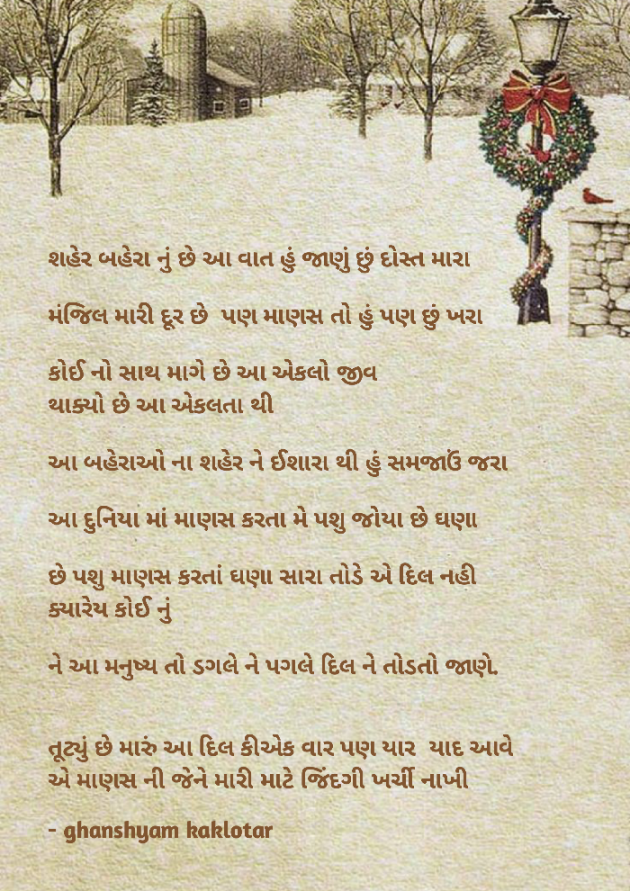 શહેર બહેરા નું છે આ વાત હું જાણું છું દોસ્ત મારા
મંજિલ મારી દૂર છે  પણ માણસ તો હું પણ છું ખરા
કોઈ નો સાથ માગે છે આ એકલો જીવ
થાક્યો છે આ એકલતા થી
આ બહેરાઓ ના શહેર ને ઈશારા થી હું સમજાઉં જરા
આ દુનિયા માં માણસ કરતા મે પશુ જોયા છે ઘણા
છે પશુ માણસ કરતાં ઘણા સારા તોડે એ દિલ નહી
ક્યારેય કોઈ નું
ને આ મનુષ્ય તો ડગલે ને પગલે દિલ ને તોડતો જાણે.
તૂટ્યું છે મારું આ દિલ કીએક વાર પણ યાર  યાદ આવે
એ માણસ ની જેને મારી માટે જિંદગી ખર્ચી નાખી
- ghanshyam kaklotar